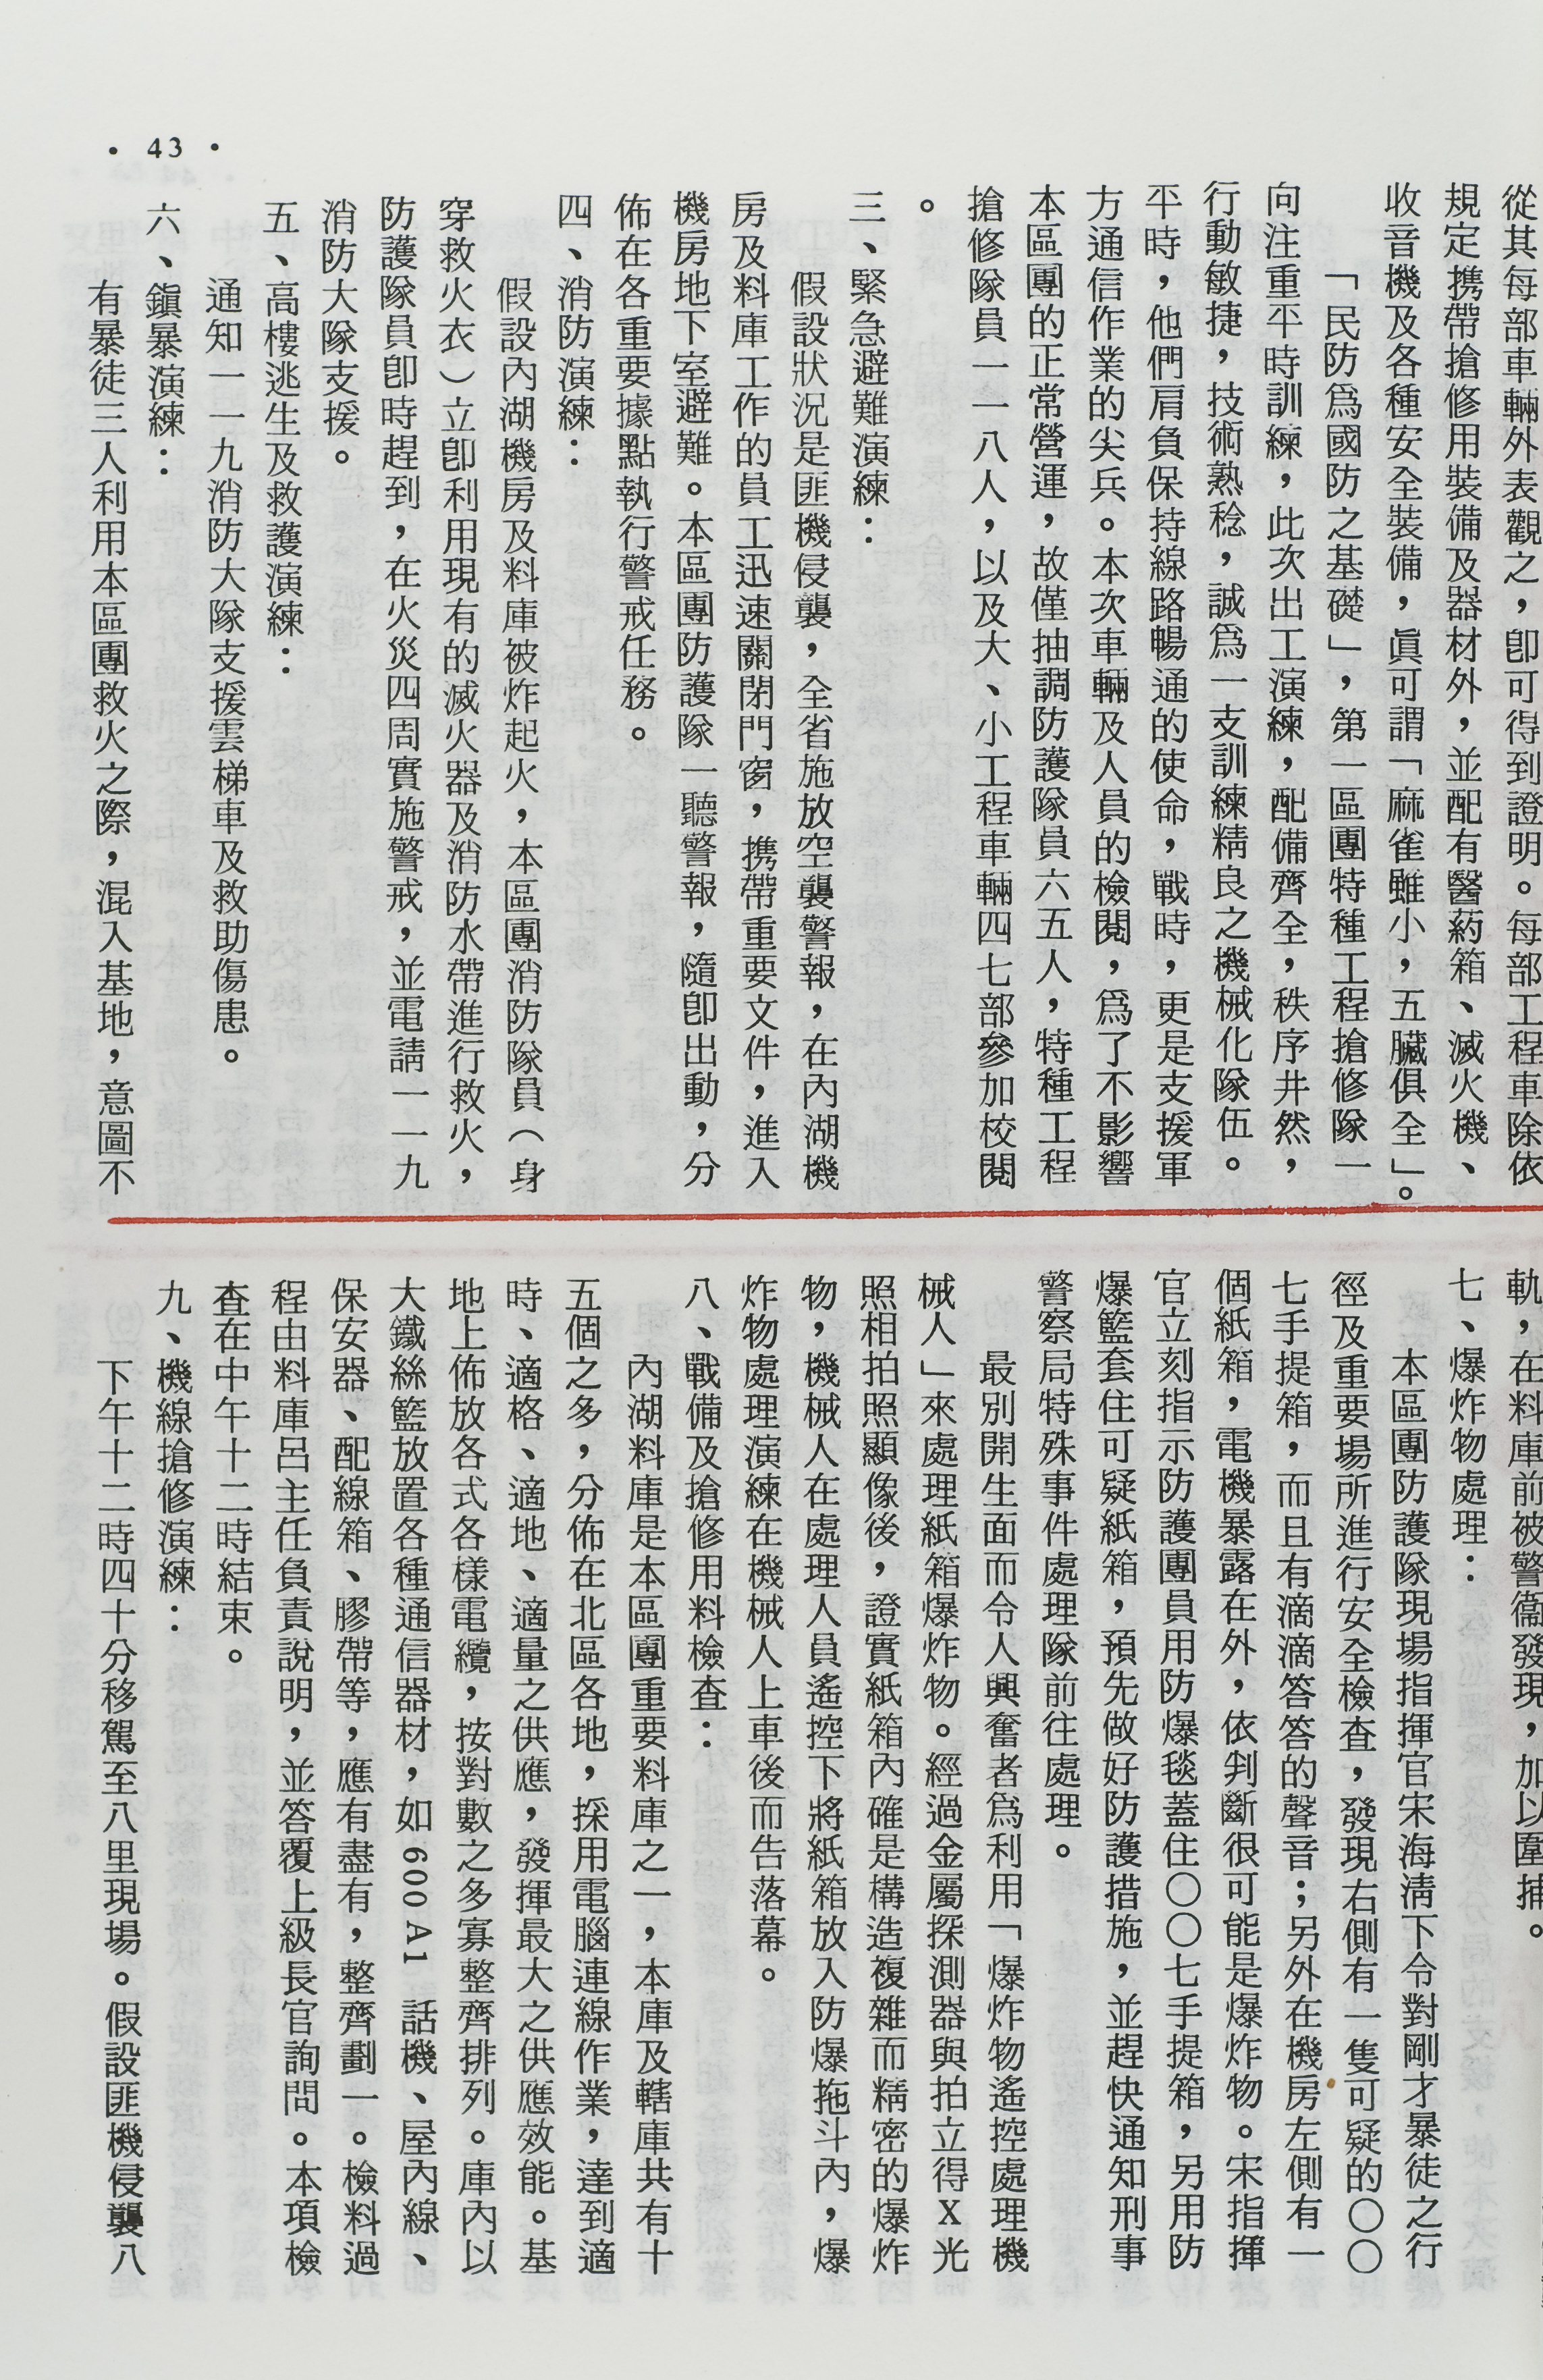 從其每部車輛外表觀之，卽可得到證明。每部工程車除依
規定携帶搶修用裝備及器材外，並配有醫葯箱、滅火機、
收音機及各種安全裝備，眞可謂「麻雀雖小，五臟俱全」。
「民防爲國防之基礎」，第一區團特種工程搶修隊一
向注重平時訓練，此次出工演練，配備齊全，秩序井然，
行動敏捷，技術熟稔，誠爲一支訓練精良之機械化隊伍。
平時，他們肩負保持線路暢通的使命，戰時，更是支援軍
方通信作業的尖兵。本次車輛及人員的檢閱，爲了不影響
本區團的正常營運，故僅抽調防護隊員六五人，特種工程
搶修隊員一一八人，以及大、小工程車輛四七部參加校閱
。
三、緊急避難演練：
假設狀況是匪機侵襲，全省施放空襲警報，在內湖機
房及料庫工作的員工迅速關閉門窗，携帶重要文件，進入
機房地下室避難。本區團防護隊一聽警報，隨卽出動，分
佈在各重要據點執行警戒任務。
四、消防演練：
假設內湖機房及料庫被炸起火，本區團消防隊員（身
穿救火衣）立卽利用現有的滅火器及消防水帶進行救火，
防護隊員卽時趕到，在火災四周實施警戒，並電請一一九
消防大隊支援。
五、高樓逃生及救護演練：
通知一一九消防大隊支援雲梯車及救助傷患。
六、鎭暴演練：
有暴徒三人利用本區團救火之際，混入基地，意圖不
軌，在料庫前被警衞發現，加以圍捕。
七、爆炸物處理：
本區團防護隊現場指揮官宋海淸下令對剛才暴徒之行
徑及重要場所進行安全檢查，發現右側有一隻可疑的〇〇
七手提箱，而且有滴滴答答的聲音；另外在機房左側有一
個紙箱，電機暴露在外，依判斷很可能是爆炸物。宋指揮
官立刻指示防護團員用防爆毯蓋住〇〇七手提箱，另用防
爆籃套住可疑紙箱，預先做好防護措施，並趕快通知刑事
警察局特殊事件處理隊前往處理。
最別開生面而令人興奮者爲利用「爆炸物遙控處理機
械人」來處理紙箱爆炸物。經過金屬探測器與拍立得X光
照相拍照顯像後，證實紙箱內確是構造複雜而精密的爆炸
物，機械人在處理人員遙控下將紙箱放入防爆拖斗內，爆
炸物處理演練在機械人上車後而告落幕。
八、戰備及搶修用料檢查：
內湖料庫是本區團重要料庫之一，本庫及轄庫共有十
五個之多，分佈在北區各地，採用電腦連線作業，達到適
時、適格、適地、適量之供應，發揮最大之供應效能。基
地上佈放各式各樣電纜，按對數之多寡整齊排列。庫內以
大鐵絲籃放置各種通信器材，如 600 A1 話機、屋內線、
保安器、配線箱、膠帶等，應有盡有，整齊劃一。檢料過
程由料庫呂主任負責說明，並答覆上級長官詢問。本項檢
查在中午十二時結束。
九、機線搶修演練：
下午十二時四十分移駕至八里現場。假設匪機侵襲八
• 43 •